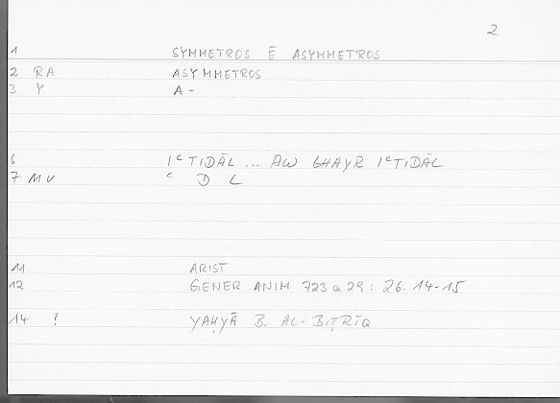 2
1 SYMMETROS Ē ASYMMETROS
2 RA ASYMMETROS
3 Y A-
6 IᶜTIDĀL ... AW GHAYR IᶜTIDĀL
7 MV ᶜ D L
11 ARIST
12 GENER ANIM 723a29: 26.14-15
14 ! YAḤYĀ B. AL-BIṬRĪQ